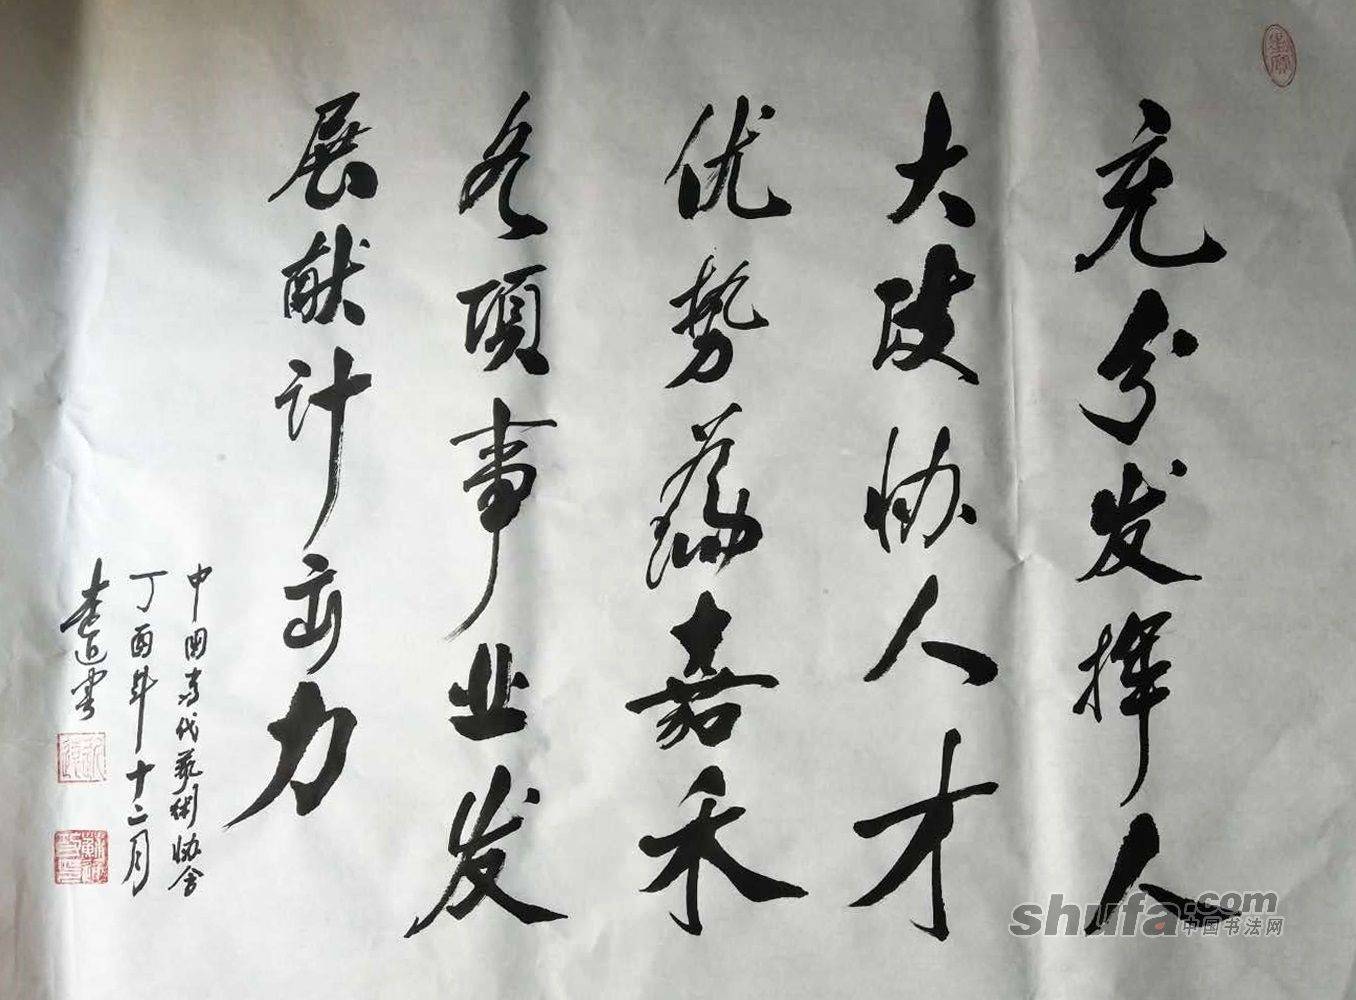 充分发挥人
大政协人才
优势为嘉禾
各項事业发
展献计出力
中国当代艺術协会
丁酉年十二月
shufa.com
中国书法网